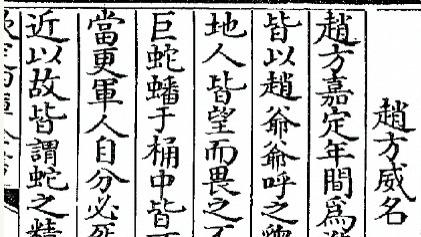 趙方威名
趙方嘉定年間爲
皆以趙爺爺呼之
地人皆望而畏之不
巨蛇蟠于桶中皆
當更軍人自分必死
近以故皆謂蛇之精